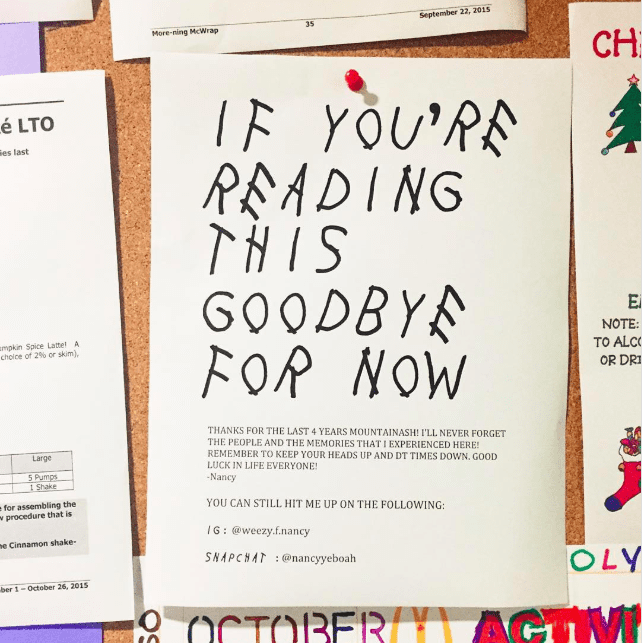 More-ning McWrap
35
September 22, 2015
é LTO
ies last
umpkin Spice Latte! A
choice of 2% or skim),
Large
5 Pumps
1 Shake
for assembling the
procedure that is
Cinnamon shake-
ber 1 – October 26, 2015
IF YOU'RE
READING
THIS
GOODBYE
FOR NOW
THANKS FOR THE LAST 4 YEARS MOUNTAINASH! I'LL NEVER FORGET
THE PEOPLE AND THE MEMORIES THAT I EXPERIENCED HERE!
REMEMBER TO KEEP YOUR HEADS UP AND DT TIMES DOWN. GOOD
LUCK IN LIFE EVERYONE!
-Nancy
YOU CAN STILL HIT ME UP ON THE FOLLOWING:
IG: @weezy.f.nancy
SNAPCHAT : @nancyyeboah
CH
NOTE:
TO ALCO
OR DRI
OLY
OCTOBER
ACTIVI